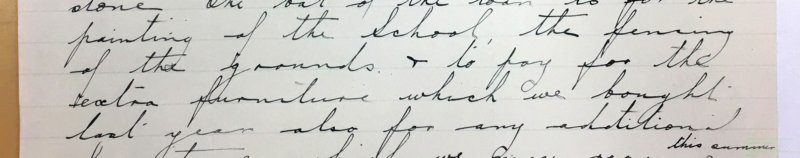 done The bal of the loan is for the
painting of the School, the fencing
of the grounds. & to pay for the
extra furniture which we bought
last year also for any additional
this summer